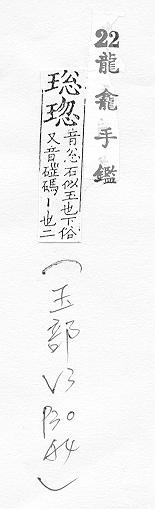 22龍龕手鑑
璁㹅音忩石似玉也下俗
又音磋碼丨也二
(玉部 V3
P30
A4)